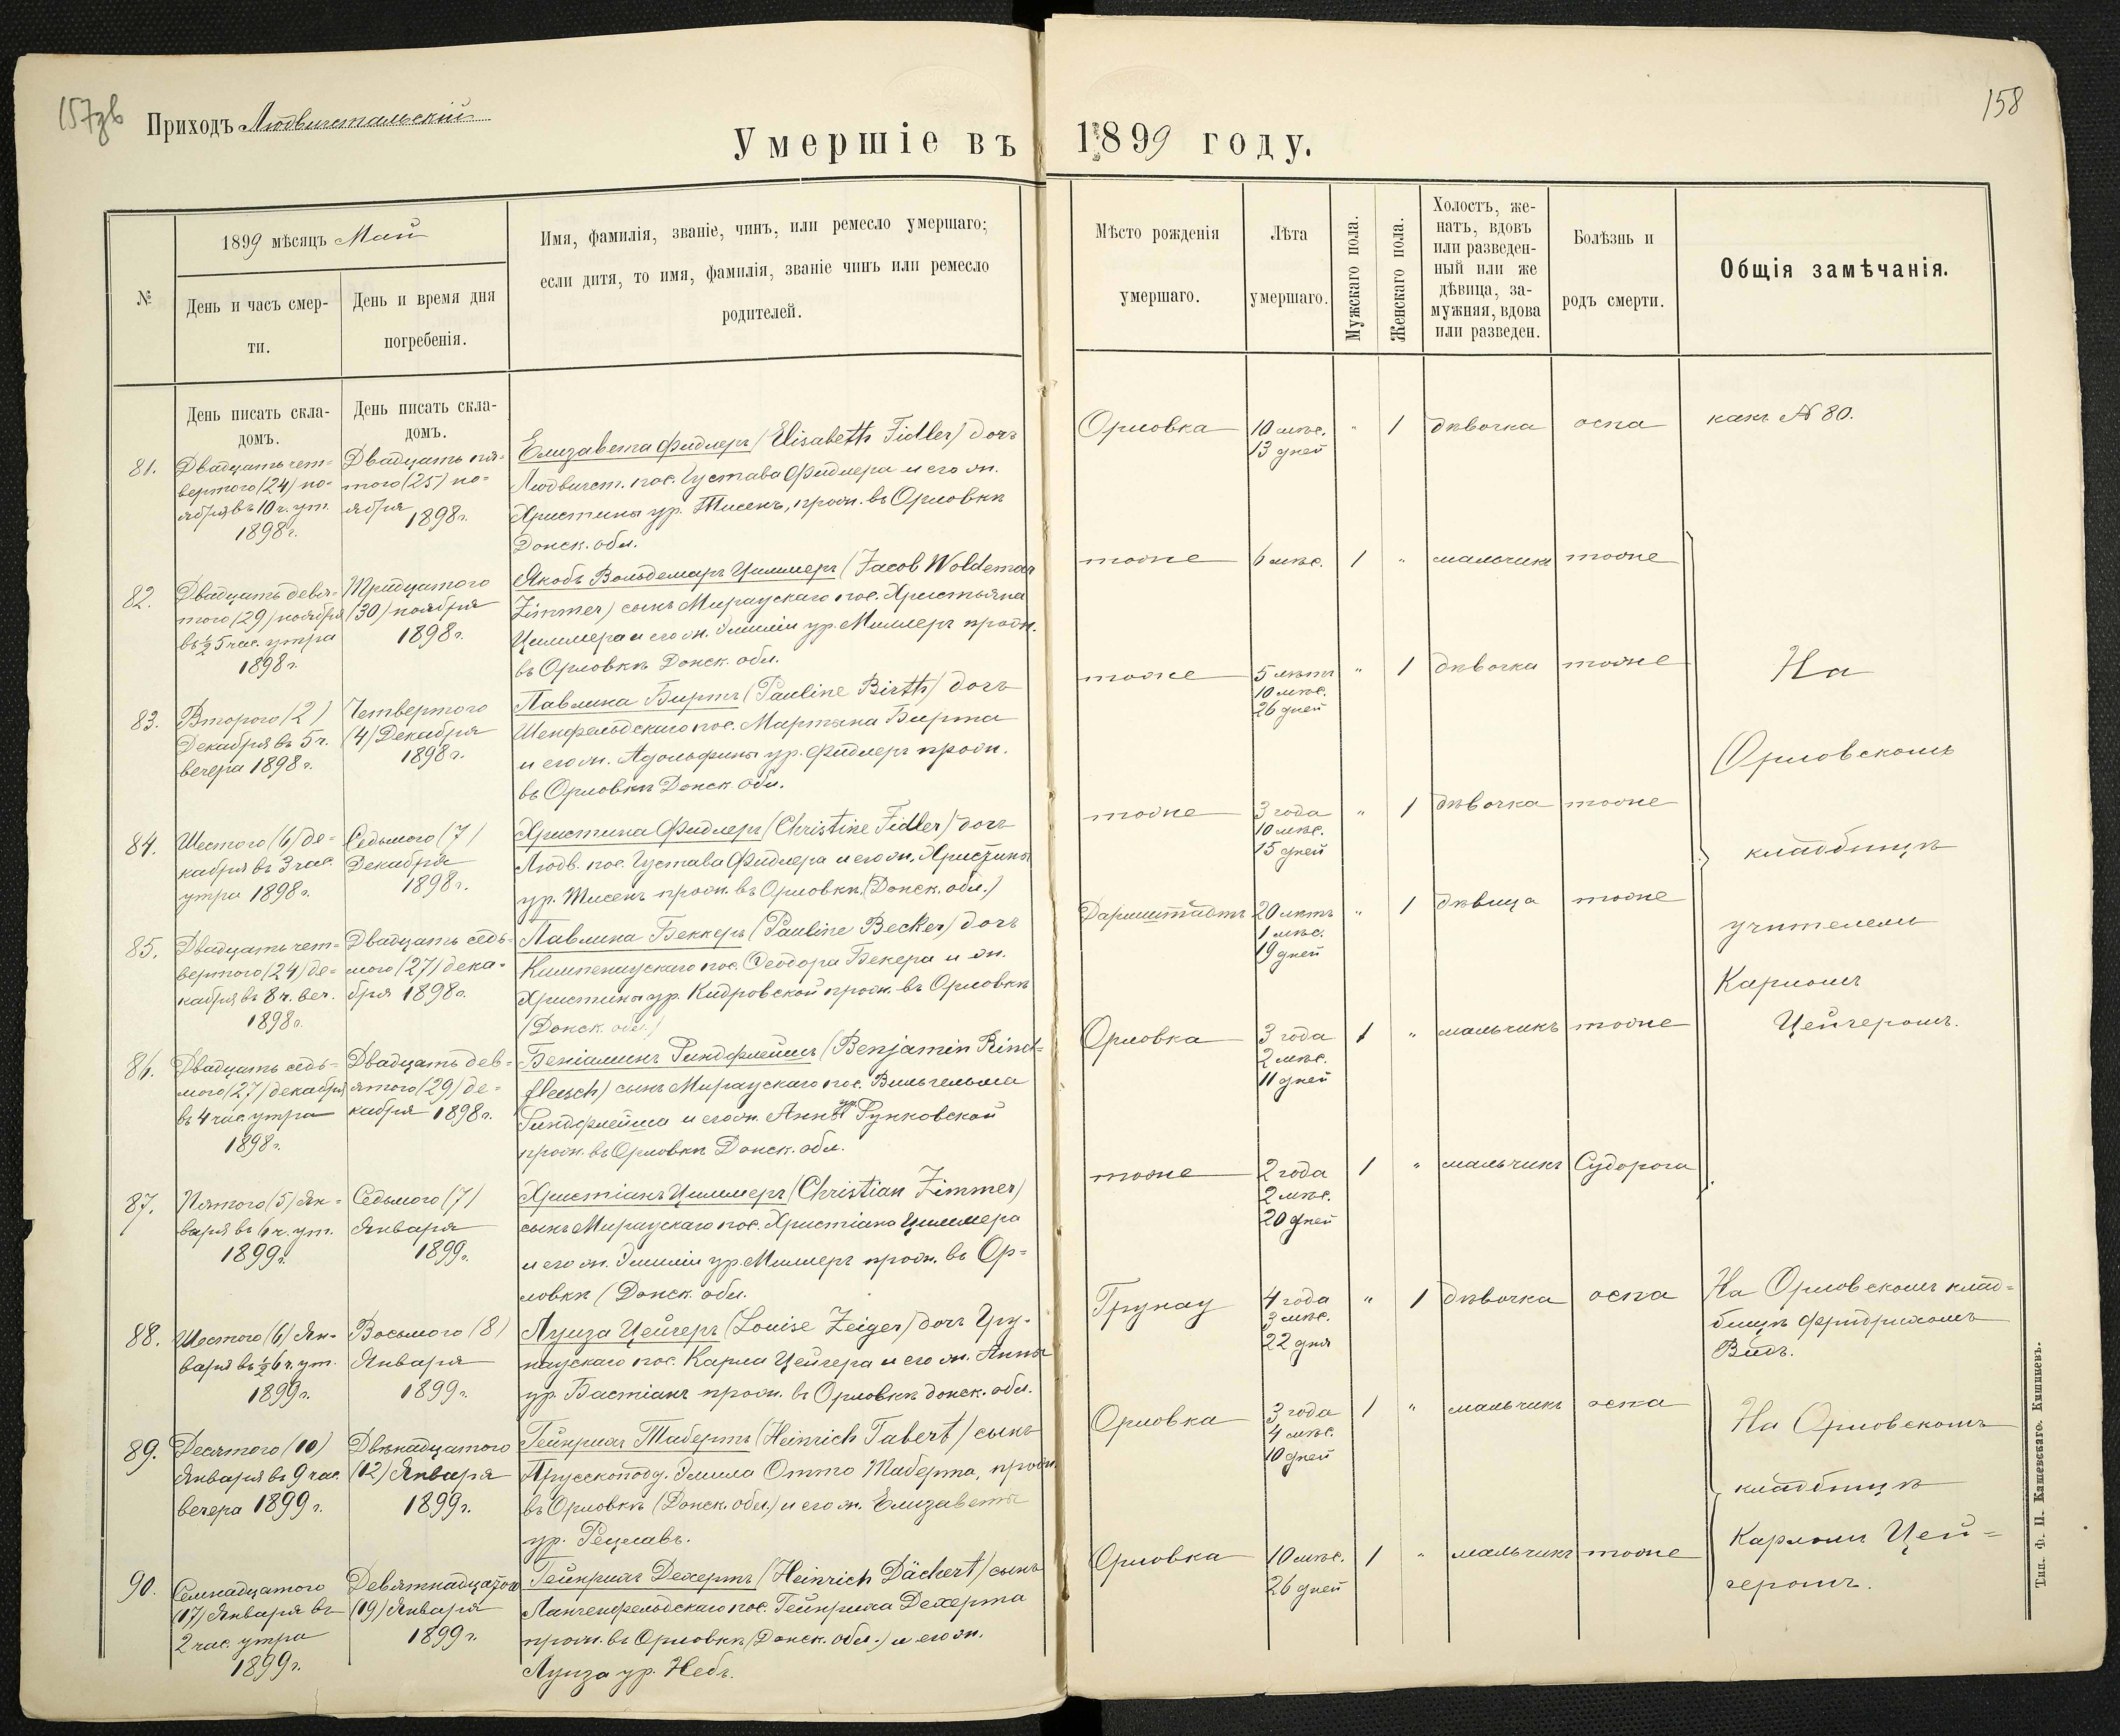 157 об
Приходъ Людвигстальскій
158
Умершіе въ 1899 году.
№
1899 мѣсяцъ Май
День и часъ смер-
ти.
День и время дня
погребенія.
Имя, фамилія, званіе, чинъ, или ремесло умершаго;
если дитя, то имя, фамилія, званіе чинъ или ремесло
родителей.
Мѣсто рожденія
умершаго.
Лѣта
умершаго.
Мужскаго пола.
Женскаго пола.
Холостъ, же-
натъ, вдовъ
или разведен-
ный или же
дѣвица, за-
мужняя, вдова
или разведен.
Болѣзнь и
родъ смерти.
Общія замѣчанія.
День писать скла-
домъ.
День писать скла-
домъ.
81.
Двадцать чет-
вертого (24) но-
ября въ 10 ч. ут.
1898 г.
Двадцать пя-
того (25) но-
ября
1898 г.
Елизавета Фидлеръ (Elisabeth Fidler) дочь
Людвигст. пос. Густава Фидлера и его ж.
Христины ур. Тисенъ, прож. въ Орловкѣ
Донск. обл.
Орловка
10 мѣс.
13 дней
" 1 дѣвочка оспа какъ № 80.
82.
Двадцать девя-
того (29) ноября
въ ½ 5 час. утра
1898 г.
Тридцатого
(30) ноября
1898 г.
Якобъ Вольдемаръ Циммеръ (Jacob Woldemar
Zimmer) сынъ Мираускаго пос. Христьяна
Циммера и его ж. Эмиліи ур. Миллеръ прож.
въ Орловкѣ Донск. обл.
тоже 6 мѣс. 1 " мальчикъ тоже
83.
Второго (2)
Декабря въ 5 ч.
вечера 1898 г.
Четвертого
(4) Декабря
1898 г.
Павлина Биртъ (Pauline Birth) дочь
Шенфельдскаго пос. Мартына Бирта
и его ж. Адольфины ур. Фидлеръ прож.
въ Орловкѣ Донск. обл.
тоже
5 лѣтъ
10 мѣс.
26 дней
" 1 дѣвочка тоже
84.
Шестого (6) де-
кабря въ 3 час.
утра 1898 г.
Седьмого (7)
Декабря
1898 г.
Христина Фидлеръ (Christine Fidler) дочь
Людв. пос. Густава Фидлера и его ж. Христины
ур. Тисенъ прож. въ Орловкѣ (Донск. обл.)
тоже
3 года
10 мѣс.
15 дней
" 1 дѣвочка тоже
85.
Двадцать чет-
вертого (24) де-
кабря въ 8 ч. веч.
1898 г.
Двадцать седь-
мого (27) дека-
бря 1898 г.
Павлина Беккеръ (Pauline Becker) дочь
Кампенаускаго пос. Ѳеодора Бекера и ж.
Христины ур. Кидровской прож. въ Орловкѣ
(Донск. обл.)
Дармштадтъ
20 лѣтъ
1 мѣс.
19 дней
" 1 дѣвица тоже
86.
Двадцать седь-
мого (27) декабря
въ 4 час. утра
1898 г.
Двадцать дев-
ятого (29) де-
кабря 1898 г.
Беніаминъ Риндфлейшъ (Benjamin Rind-
fleisch) сынъ Мираускаго пос. Вильгельма
Риндфлейша и его ж. Анны ур. Рунковской
прож. въ Орловкѣ Донск. обл.
Орловка
3 года
2 мѣс.
11 дней
1 " мальчикъ тоже
87.
Пятого (5) Ян-
варя въ 6 ч. ут.
1899 г.
Седьмого (7)
Января
1899 г.
Христіанъ Циммеръ (Christian Zimmer)
сынъ Мираускаго пос. Христіана Циммера
и его ж. Эмиліи ур. Миллеръ прож. въ Ор-
ловкѣ (Донск. обл.
тоже
2 года
2 мѣс.
20 дней
1 " мальчикъ Судорога
На
Орловскомъ
кладбищѣ
учителемъ
Карломъ
Цейгеромъ.
88.
Шестого (6) Ян-
варя въ ½ 6 ч. ут.
1899 г.
Восьмого (8)
Января
1899 г.
Луиза Цейгеръ (Louise Zeiger) дочь Гру-
наускаго пос. Карла Цейгера и его ж. Анны
ур. Бастіанъ прож. въ Орловкѣ Донск. обл.
Грунау
4 года
3 мѣс.
22 дня
" 1 дѣвочка оспа
На Орловскомъ клад-
бищѣ Фридрихомъ
Видъ.
89.
Десятого (10)
Января въ 9 час.
вечера 1899 г.
Двѣнадцатого
(12) Января
1899 г.
Гейнрихъ Табертъ (Heinrich Tabert) сынъ
Прусскоподд. Эмила Отто Таберта, прож.
въ Орловкѣ (Донск. обл.) и его ж. Елизаветы
ур. Рецлавъ.
Орловка
3 года
4 мѣс.
10 дней
1 " мальчикъ оспа
90.
Семнадцатого
(17) Января въ
2 час. утра
1899 г.
Девятнадцатого
(19) Января
1899 г.
Гейнрихъ Дехертъ (Heinrich Dächert) сынъ
Лангенфельдскаго пос. Гейнриха Дехерта
прож. въ Орловкѣ (Донск. обл.) и его ж.
Луиза ур. Небъ.
Орловка
10 мѣс.
26 дней
1 " мальчикъ тоже
На Орловскомъ
кладбищѣ
Карломъ Цей-
геромъ.
Тип. Ф. П. Кашевскаго. Кишиневъ.